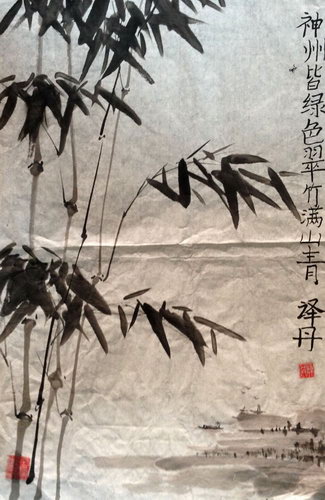 神州皆绿色翠竹满山青 译丹